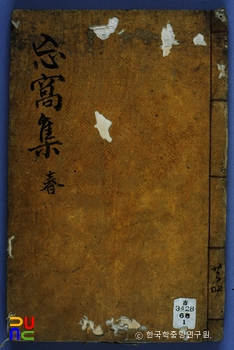 忘窩集
春
古
3428
6책
1
PUNC
© 한국학중앙연구원.